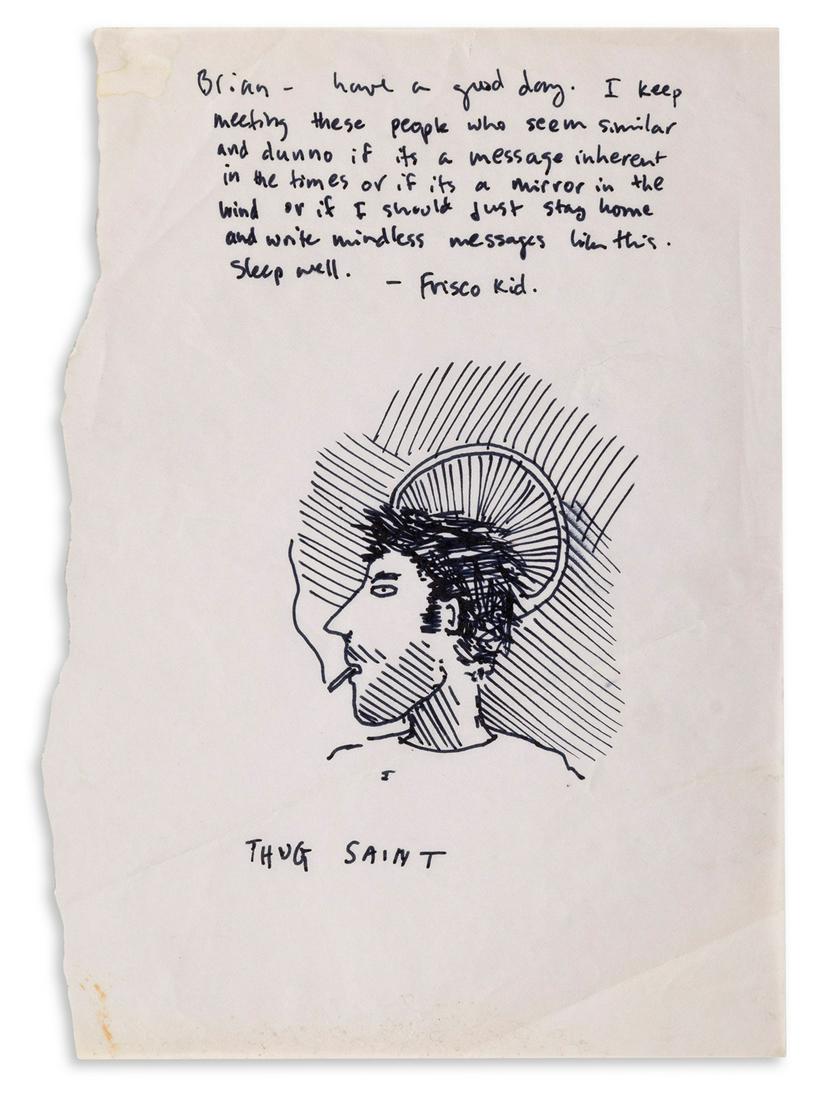 Brian - have a good day. I keep
meeting these people who seem similar
and dunno if its a message inherent
in the times or if its a mirror in the
wind or if I should just stay home
and write mindless messages like this.
Sleep well.
- Frisco Kid.
THUG SAINT